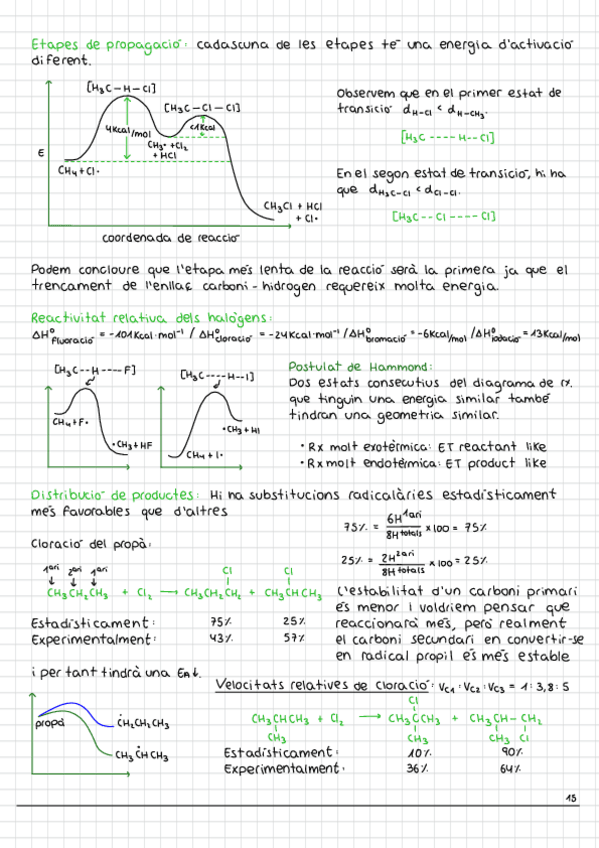 Etapes de propagació: cadascuna de les etapes té una energia d'activació
diferent.
[H₃C—H—Cl]
[H₃C—Cl—Cl]
4Kcal/mol
<1Kcal
CH₃• + Cl₂
+ HCl
E
CH₄ + Cl•
CH₃Cl + HCl
+ Cl•
coordenada de reacció
Observem que en el primer estat de
transició d H-Cl < d H-CH₃.
[H₃C ---- H--Cl]
En el segon estat de transició, hi ha
que d H₃C-Cl < d Cl-Cl.
[H₃C -- Cl ---- Cl]
Podem concloure que l'etapa més lenta de la reacció serà la primera ja que el
trencament de l'enllaç carboni-hidrogen requereix molta energia.
Reactivitat relativa dels halògens:
ΔH° fluoració = -101Kcal·mol⁻¹ / ΔH° cloració = -24Kcal·mol⁻¹ / ΔH° bromació = -6Kcal/mol / ΔH° iodació = 13Kcal/mol
[H₃C--H----F]
CH₄ + F•
•CH₃ + HF
[H₃C----H--I]
•CH₃ + HI
CH₄ + I•
Postulat de Hammond:
Dos estats consecutius del diagrama de rx.
que tinguin una energia similar també
tindran una geometria similar.
• Rx molt exotèrmica: ET reactant like
• Rx molt endotèrmica: ET product like
Distribució de productes: Hi ha substitucions radicalàries estadísticament
més favorables que d'altres
75% = 6H 1ari / 8H totals x 100 = 75%
25% = 2H 2ari / 8H totals x 100 = 25%
Cloració del propà:
1ari 2ari 1ari
Cl Cl
CH₃CH₂CH₃ + Cl₂ → CH₃CH₂CH₂ + CH₃CHCH₃
Estadísticament: 75% 25%
Experimentalment: 43% 57%
L'estabilitat d'un carboni primari
és menor i voldriem pensar que
reaccionarà més, però realment
el carboni secundari en convertir-se
en radical propil és més estable
i per tant tindrà una EA↓.
propà
ĊH₂CH₂CH₃
CH₃ĊHCH₃
Velocitats relatives de cloració: VC1 : VC2 : VC3 = 1 : 3,8 : 5
Cl
CH₃CHCH₃ + Cl₂ → CH₃CCH₃ + CH₃CH—CH₂
CH₃ CH₃ CH₃ Cl
Estadísticament: 10% 90%
Experimentalment: 36% 64%
15